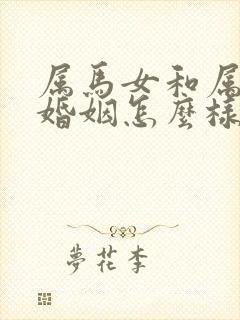 属馬女和属
婚姻怎麼樣
夢花李